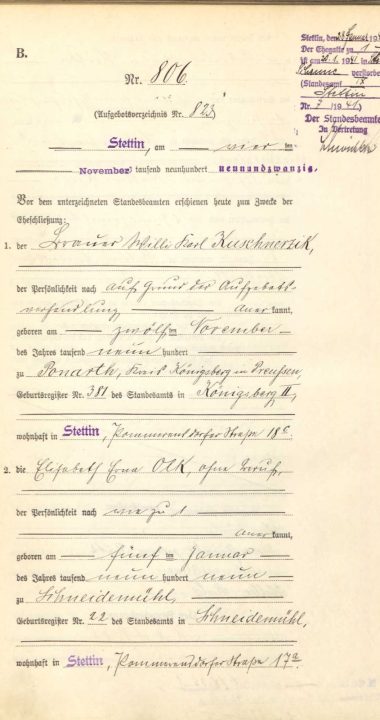 Stettin, den 194
B.
Der Ehegatte zu 1
ist am 1941 in
verstorben
(Standesamt
Stettin
Nr. 7 1941)
Der Standesbeamte
In Vertretung
Nr. 806.
(Aufgebotsverzeichnis Nr. 823)
Stettin, am vier ten
November tausend neunhundert neunundzwanzig.
Vor dem unterzeichneten Standesbeamten erschienen heute zum Zwecke der
Eheschließung:
1. der Brauer Willi Karl Kuschnerzik,
der Persönlichkeit nach auf Grund der Aufgebots-
verhandlung aner kannt,
geboren am zwölf ten November
des Jahres tausend neun hundert
zu Ponarth, Kreis Königsberg in Preussen,
Geburtsregister Nr. 381 des Standesamts in Königsberg II,
wohnhaft in Stettin, Pommerensdorfer Straße 18c.
2. die Elisabeth Erna Olk, ohne Beruf,
der Persönlichkeit nach wie zu 1
aner kannt,
geboren am fünf ten Januar
des Jahres tausend neun hundert neun
zu Schneidemühl,
Geburtsregister Nr. 22 des Standesamts in Schneidemühl,
wohnhaft in Stettin, Pommerensdorfer Straße 17a.